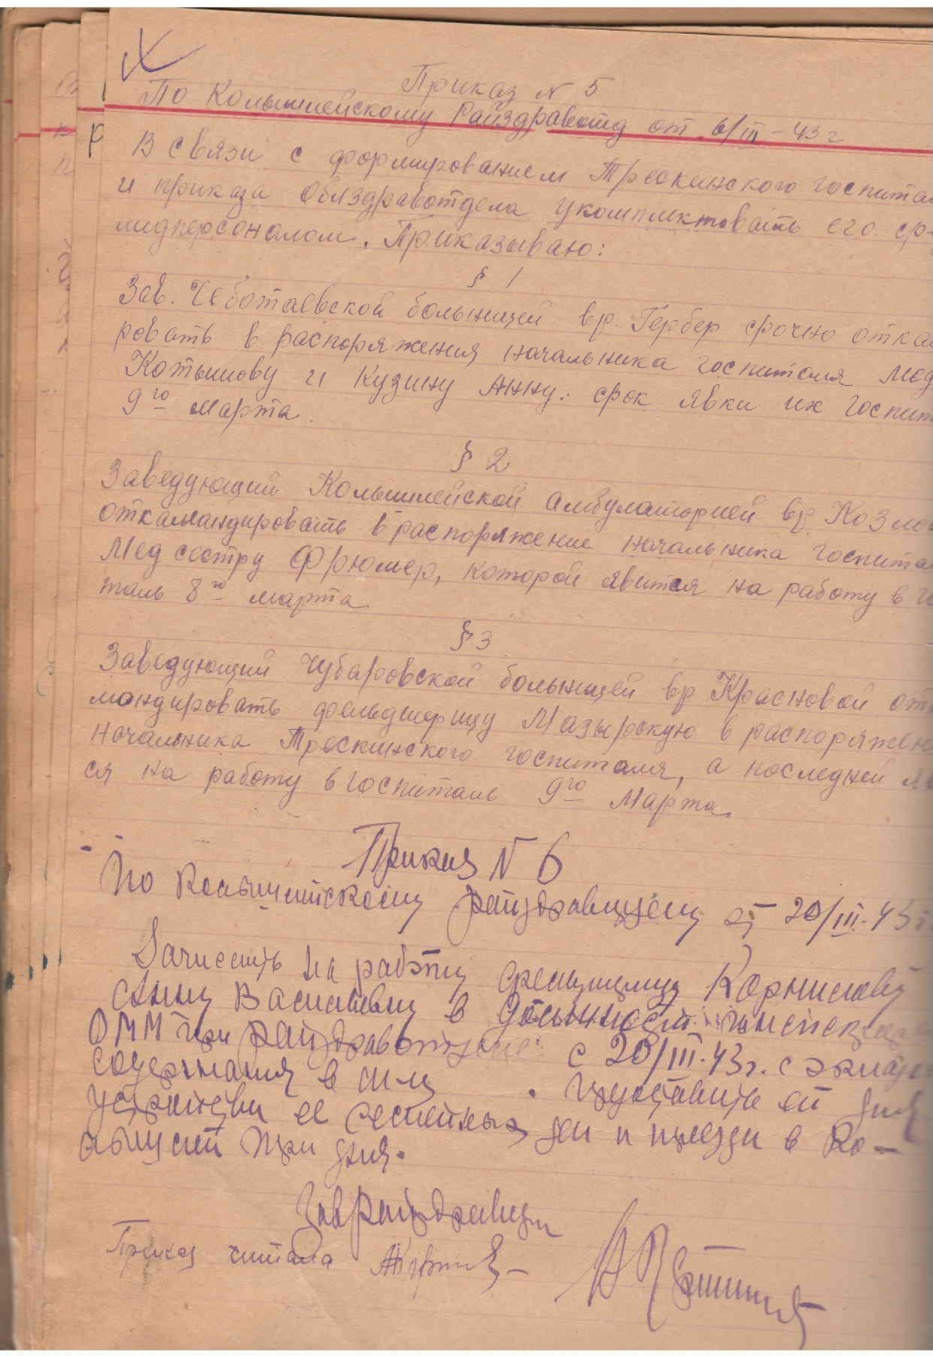 Приказ N 5
По Колышлейскому Райздравотд от 6/III-43 г
В связи с формированием Трескинского госпита
и приказа Облздравотдела укомплектовать его ср-
медперсоналом. Приказываю:
§ 1
Зав. Чеботаевской больницей вр. Гербер срочно отка
ровать в распоряжения начальника госпиталя мед
Котышову и Кузину Анну. срок явки их госпит
9го марта.
§ 2
Заведующий Колышлейской амбулаторией вр Козло
откамандировать в распоряжение начальника госпита
Мед сестру Фрюмер, которой явится на работу в г
таль 8го марта
§ 3
Заведующий Чубаровской больницей вр Красновой отк
мандировать фельдшерицу Мазырскую в распоряжен
начальника Трескинского госпиталя, а последней я
ся на работу в госпиталь 9го Марта.
Приказ N 6
По Колышлейскому райздравотделу от 20/III-43 г.
Зачислить на работу Корнилову
Анну Васильевну в должност
ОММ при райздравотделе с 20/III-43 г. с
содержания в Предоставить ей для
устройства ее семейных дел и приезда в Ко-
лышлей три дня.
Заврайздравотд
Приказ читала